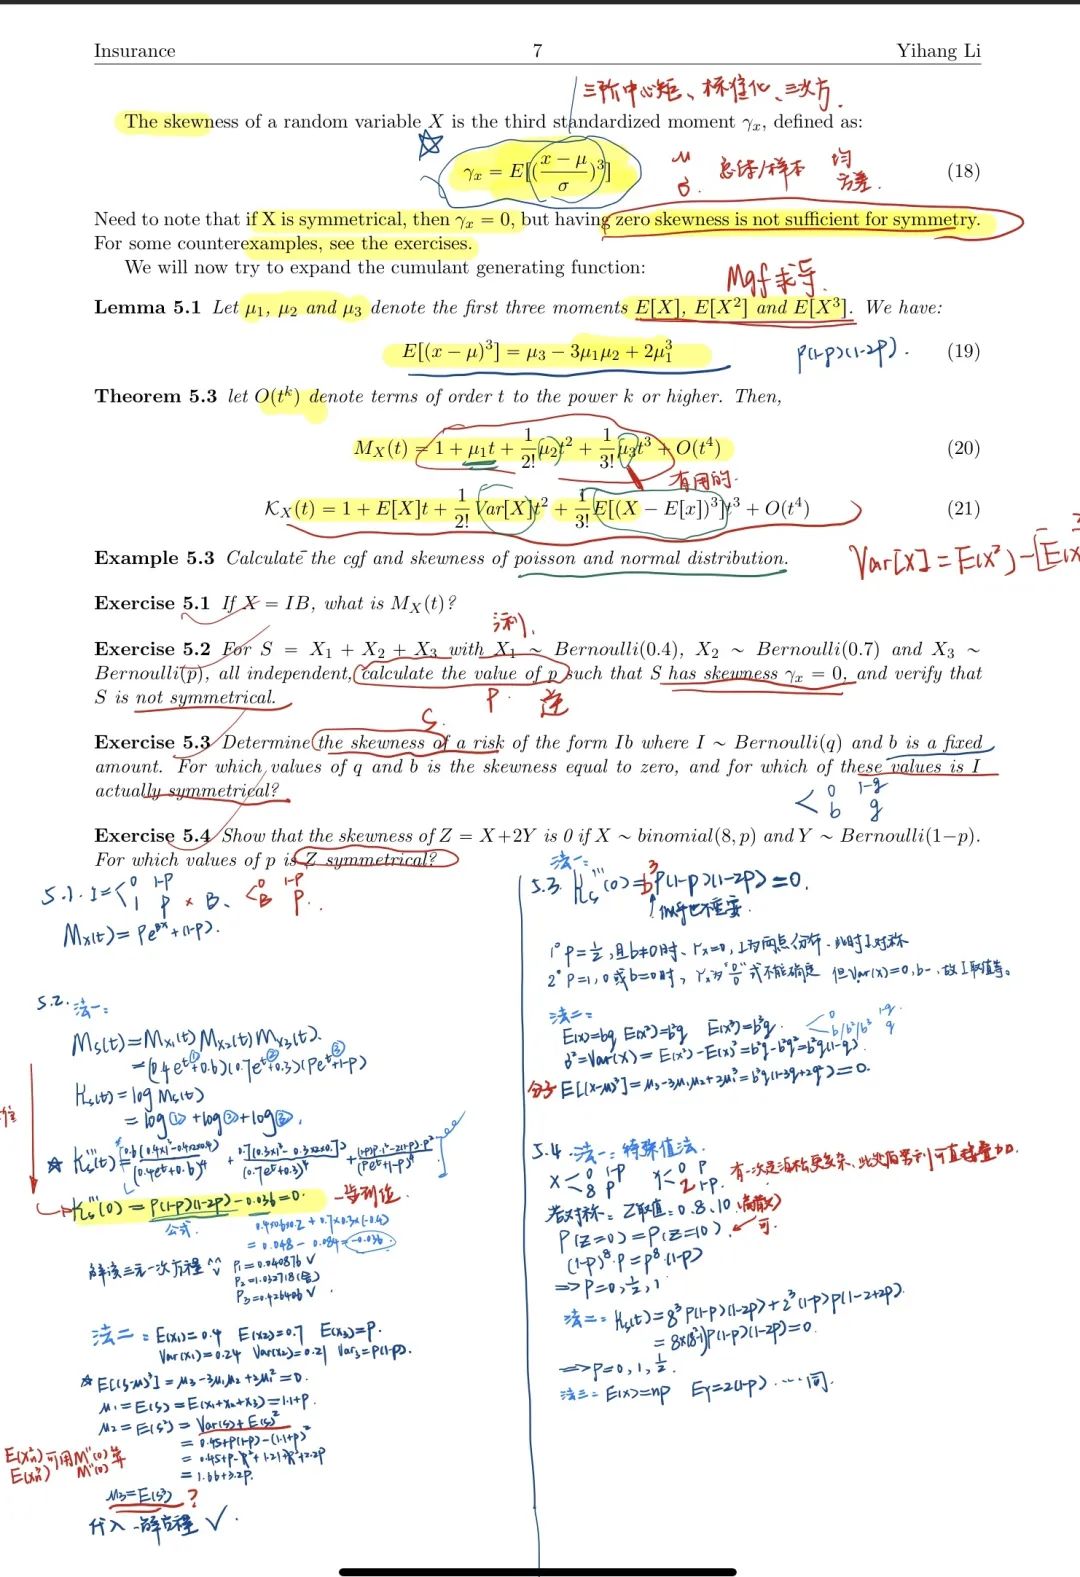 Insurance 7 Yihang Li
三阶中心矩、标准化、三次方.
The skewness of a random variable X is the third standardized moment γₓ, defined as:
γₓ = E[(x − μ / σ)³] (18)
μ 总体/样本 均
σ. 方差.
Need to note that if X is symmetrical, then γₓ = 0, but having zero skewness is not sufficient for symmetry.
For some counterexamples, see the exercises.
We will now try to expand the cumulant generating function:
Mgf求导.
Lemma 5.1 Let μ₁, μ₂ and μ₃ denote the first three moments E[X], E[X²] and E[X³]. We have:
E[(x − μ)³] = μ₃ − 3μ₁μ₂ + 2μ₁³ (19)
P(1-P)(1-2P).
Theorem 5.3 let O(tᵏ) denote terms of order t to the power k or higher. Then,
M_X(t) = 1 + μ₁t + 1/2! μ₂t² + 1/3! μ₃t³ + O(t⁴) (20)
有用的.
K_X(t) = 1 + E[X]t + 1/2! Var[X]t² + 1/3! E[(X − E[x])³]t³ + O(t⁴) (21)
Var[X] = E(X²) - [E(X
Example 5.3 Calculate the cgf and skewness of poisson and normal distribution.
Exercise 5.1 If X = IB, what is M_X(t)?
Exercise 5.2 For S = X₁ + X₂ + X₃ with X₁ ∼ Bernoulli(0.4), X₂ ∼ Bernoulli(0.7) and X₃ ∼
Bernoulli(p), all independent, calculate the value of p such that S has skewness γₓ = 0, and verify that
S is not symmetrical.
P.
S.
Exercise 5.3 Determine the skewness of a risk of the form Ib where I ∼ Bernoulli(q) and b is a fixed
amount. For which values of q and b is the skewness equal to zero, and for which of these values is I
actually symmetrical?
0 1-q
b q
Exercise 5.4 Show that the skewness of Z = X+2Y is 0 if X ∼ binomial(8, p) and Y ∼ Bernoulli(1−p).
For which values of p is Z symmetrical?
5.1. I=< 0 1-P
1 P × B、< 0 1-P
B P.
M_X(t) = Pe^BX + (1-P).
5.2. 法一:
Ms(t) = Mx₁(t) Mx₂(t) Mx₃(t).
= (0.4e^t+0.6)(0.7e^t+0.3)(Pe^t+1-P)
Ks(t) = log Ms(t)
= log① + log② + log③.
Ks'''(0) = P(1-P)(1-2P) - 0.036 = 0. 一步到位
公式
0.4×0.6×0.2 + 0.7×0.3×(-0.4)
= 0.048 - 0.084 = -0.036
解该三元一次方程 ^^ P₁=0.040876 ✓
P₂=1.032718(舍)
P₃=0.426406 ✓
法二: E(X₁)=0.4 E(X₂)=0.7 E(X₃)=P.
Var(X₁)=0.24 Var(X₂)=0.21 Var₃=P(1-P).
☆ E[(S-M)³] = M₃ - 3M₁M₂ + 2M₁² = 0.
M₁ = E(S) = E(X₁+X₂+X₃) = 1.1+P.
M₂ = E(S²) = Var(S) + E(S)²
= 0.45+P(1-P)-(1.1+P)²
= 0.45+P-P²+1.21+P²+2.2P
= 1.66+3.2P.
E(Xn²)可用M''(0)等
E(Xn³) M'''(0)
M₃=E(S³) ?
代入 解方程 ✓.
法一:
5.3. Ks'''(0) = b³P(1-P)(1-2P) = 0.
1° P=½, 且b≠0时、γx=0, I为两点分布. 此时I对称
2° P=1, 0或b=0时, γx为"0/0"式不能确定 但Var(x)=0,
法二:
E(x)=bq E(x²)=b²q E(x³)=b³q.
0 1-q
b/b²/b³ q
σ²=Var(X) = E(x²)-E(x)² = b²q-b²q² = b²q(1-q).
分子 E[(x-M)³] = M₃-3M₁M₂+2M₁³ = b³q(1-3q+2q²) = 0.
5.4. 法一: 特殊值法
X< 0 1-P
8 P
Y< 0 P
2 1-P.
若对称: Z取值=0.8、10.(离散)
P(Z=0) = P(Z=10). ← 可.
(1-P)⁸·P = P⁸·(1-P)
⇒ P=0,½,1
法二: Ks(t) = 8³P(1-P)(1-2P)+2³(1-P)P(1-2+2P)
= 8×(8²-1)P(1-P)(1-2P)=0.
⇒ P=0,1,½.
法三: E(X)=np EY=2(1-P) … 同.